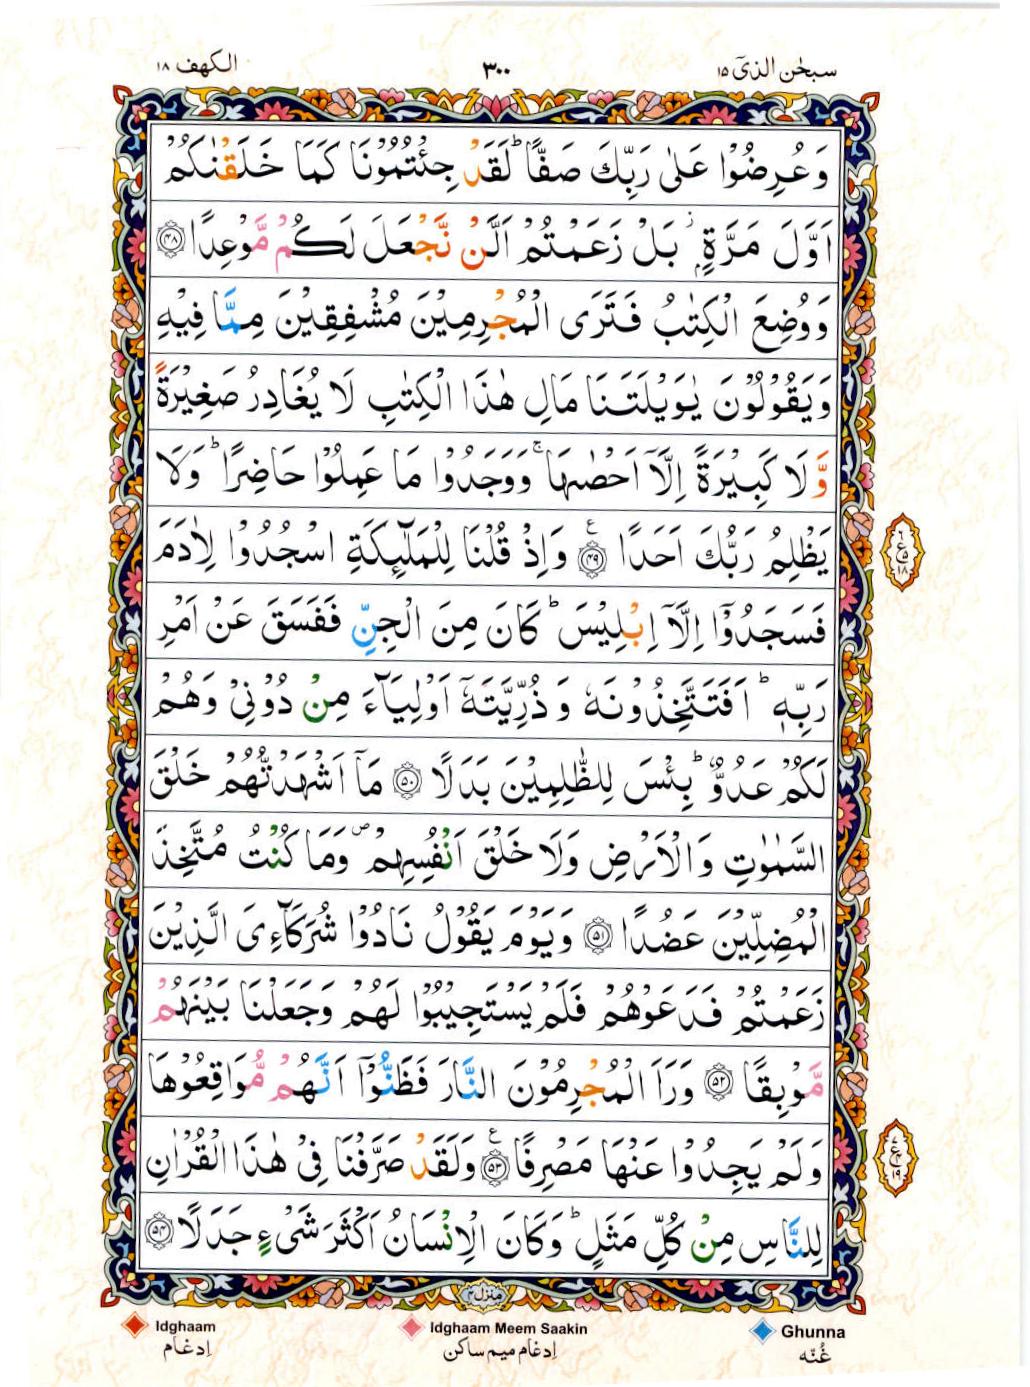 سبحٰن الذیٓ ۱۵ ۳۰۰ الکهف ۱۸
وَعُرِضُوْا عَلٰی رَبِّكَ صَفًّا ؕ لَقَدْ جِئْتُمُوْنَا كَمَا خَلَقْنٰكُمْ
اَوَّلَ مَرَّةٍۭ ؗ بَلْ زَعَمْتُمْ اَلَّنْ نَّجْعَلَ لَكُمْ مَّوْعِدًا ﴿۴۸﴾
وَوُضِعَ الْكِتٰبُ فَتَرَی الْمُجْرِمِیْنَ مُشْفِقِیْنَ مِمَّا فِیْهِ
وَیَقُوْلُوْنَ یٰوَیْلَتَنَا مَالِ هٰذَا الْكِتٰبِ لَا یُغَادِرُ صَغِیْرَةً
وَّلَا كَبِیْرَةً اِلَّاۤ اَحْصٰىهَا ۚ وَوَجَدُوْا مَا عَمِلُوْا حَاضِرًا ؕ وَلَا
یَظْلِمُ رَبُّكَ اَحَدًا ﴿۴۹﴾ ع وَاِذْ قُلْنَا لِلْمَلٰٓىِٕكَةِ اسْجُدُوْا لِاٰدَمَ
فَسَجَدُوْۤا اِلَّاۤ اِبْلِیْسَ ؕ كَانَ مِنَ الْجِنِّ فَفَسَقَ عَنْ اَمْرِ
رَبِّهٖ ؕ اَفَتَتَّخِذُوْنَهٗ وَ ذُرِّیَّتَهٗۤ اَوْلِیَآءَ مِنْ دُوْنِیْ وَهُمْ
لَكُمْ عَدُوٌّ ؕ بِئْسَ لِلظّٰلِمِیْنَ بَدَلًا ﴿۵۰﴾ مَاۤ اَشْهَدْتُّهُمْ خَلْقَ
السَّمٰوٰتِ وَالْاَرْضِ وَلَا خَلْقَ اَنْفُسِهِمْ ۪ وَمَا كُنْتُ مُتَّخِذَ
الْمُضِلِّیْنَ عَضُدًا ﴿۵۱﴾ وَیَوْمَ یَقُوْلُ نَادُوْا شُرَكَآءِیَ الَّذِیْنَ
زَعَمْتُمْ فَدَعَوْهُمْ فَلَمْ یَسْتَجِیْبُوْا لَهُمْ وَجَعَلْنَا بَیْنَهُمْ
مَّوْبِقًا ﴿۵۲﴾ وَرَاَ الْمُجْرِمُوْنَ النَّارَ فَظَنُّوْۤا اَنَّهُمْ مُّوَاقِعُوْهَا
وَلَمْ یَجِدُوْا عَنْهَا مَصْرِفًا ﴿۵۳﴾ ع وَلَقَدْ صَرَّفْنَا فِیْ هٰذَا الْقُرْاٰنِ
لِلنَّاسِ مِنْ كُلِّ مَثَلٍ ؕ وَكَانَ الْاِنْسَانُ اَكْثَرَ شَیْءٍ جَدَلًا ﴿۵۴﴾
منزل ۴
Idghaam Idghaam Meem Saakin Ghunna
اِدغام اِدغام میم ساکن غُنّه